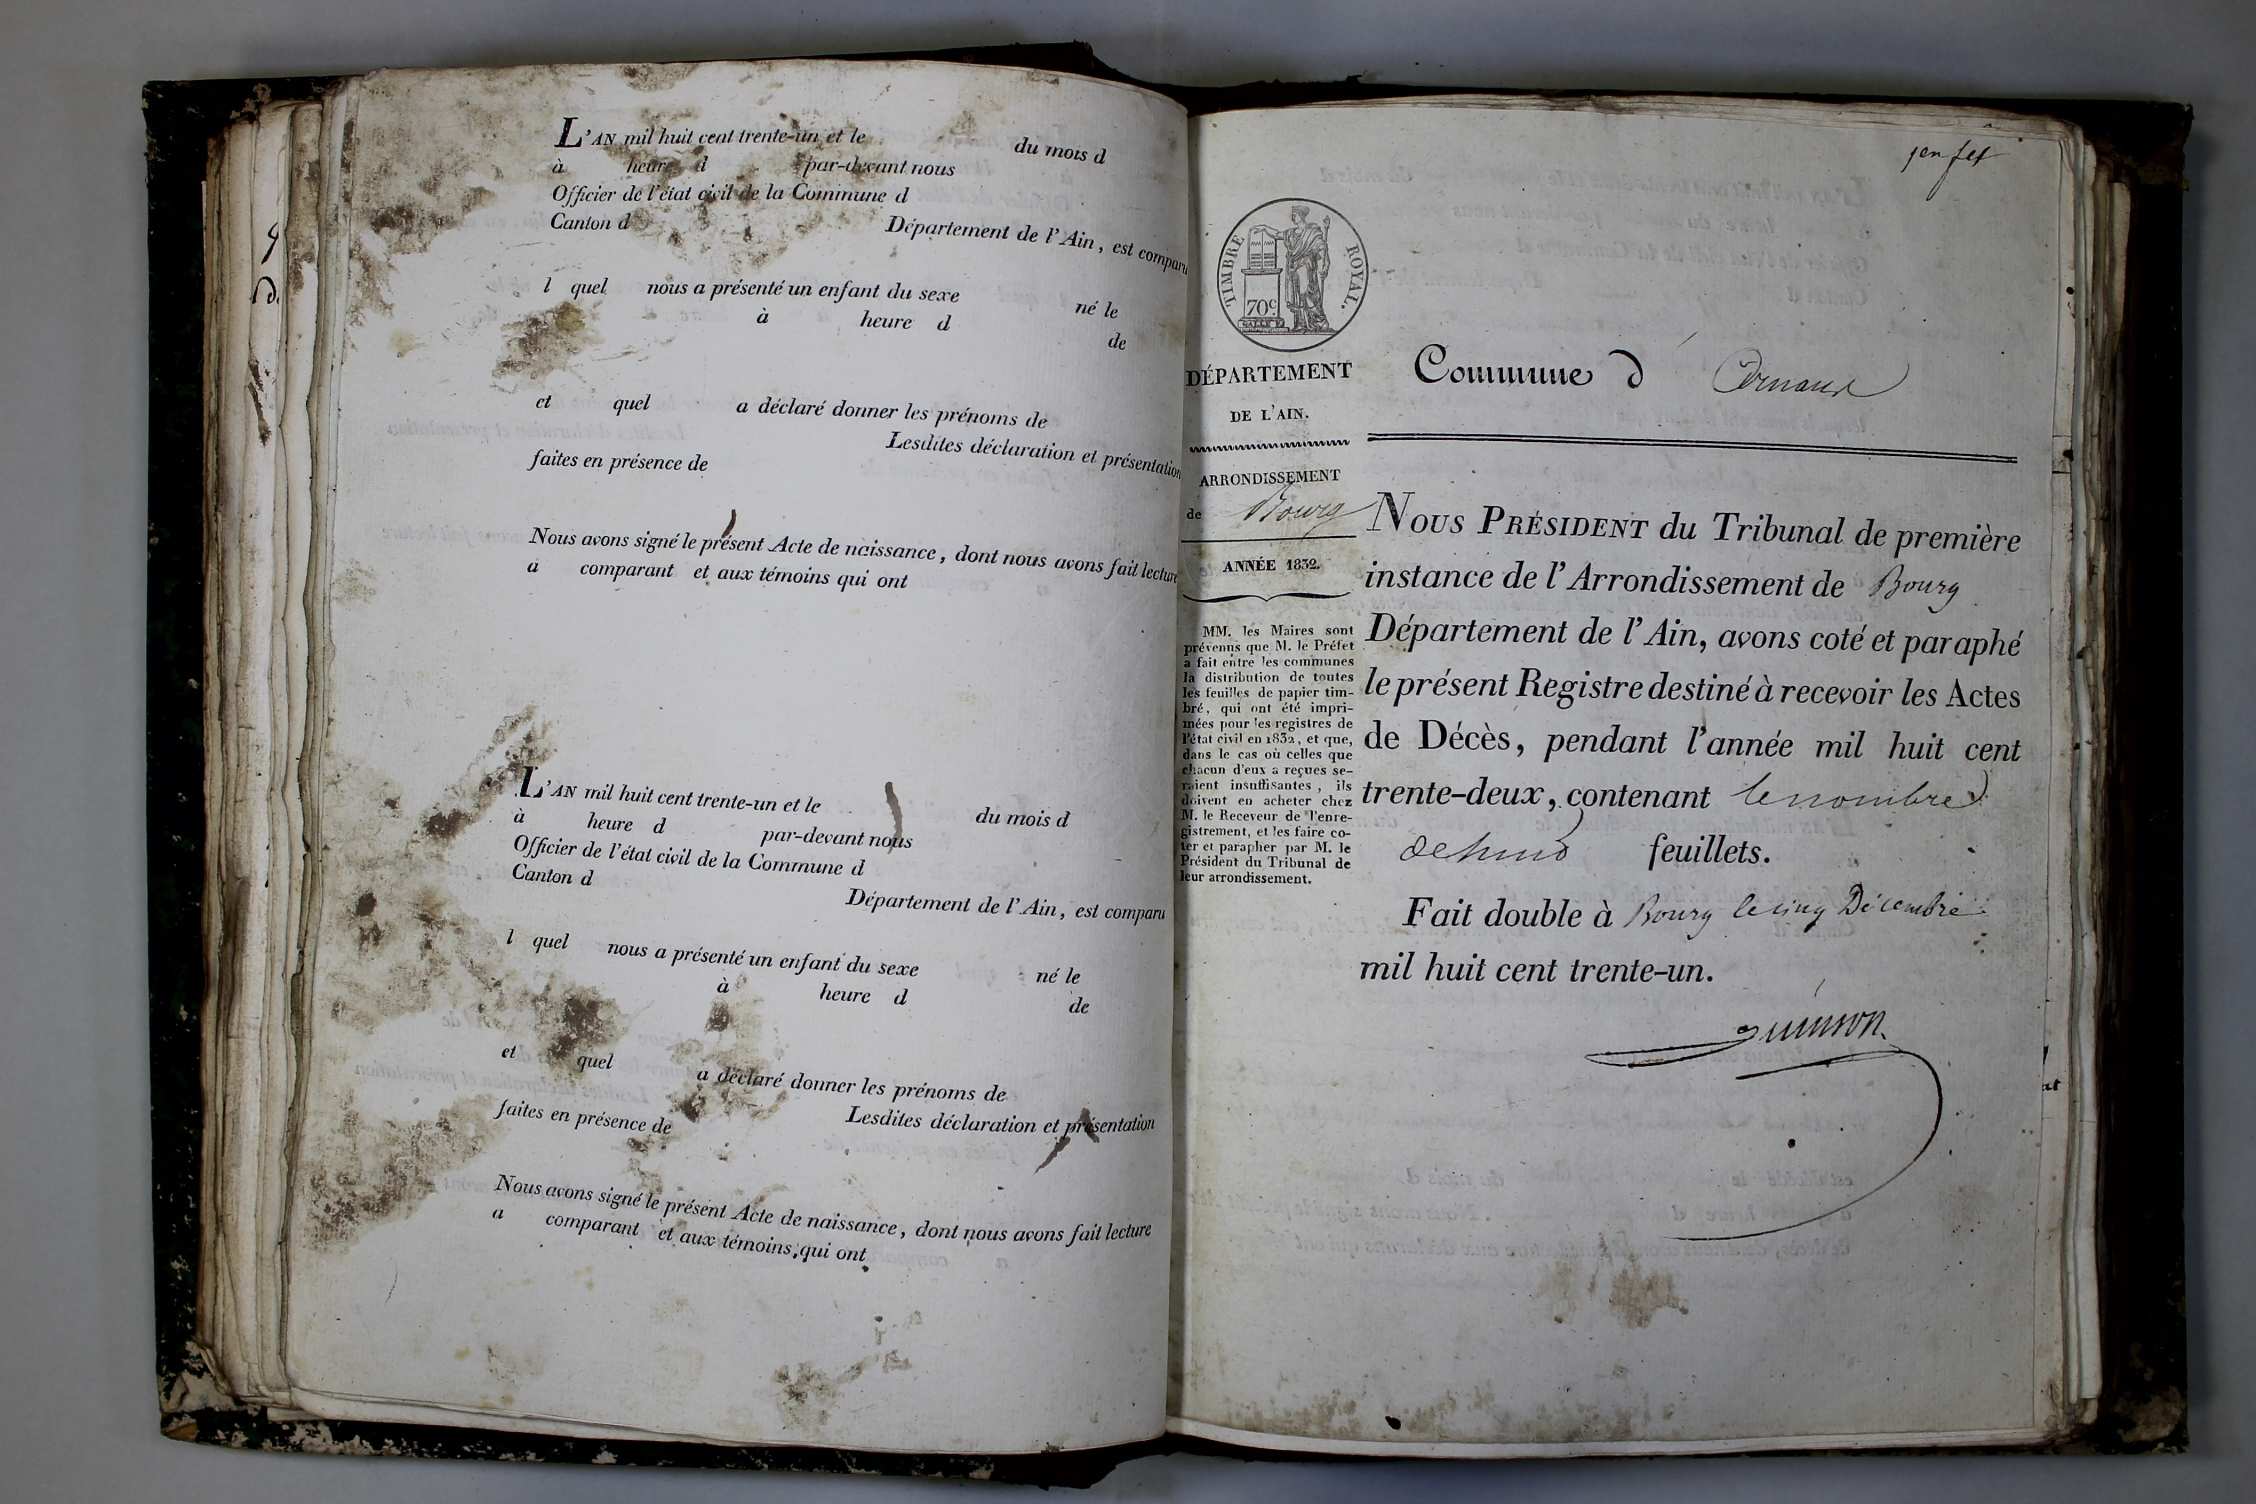 L'AN mil huit cent trente-un et le du mois d
à heure d par-devant nous
Officier de l'état civil de la Commune d
Canton d Département de l'Ain, est comparu
l quel nous a présenté un enfant du sexe né le
à heure d de
et quel a déclaré donner les prénoms de
Lesdites déclaration et présentation
faites en présence de
Nous avons signé le présent Acte de naissance, dont nous avons fait lecture
a comparant et aux témoins qui ont
L'AN mil huit cent trente-un et le du mois d
à heure d par-devant nous
Officier de l'état civil de la Commune d
Canton d Département de l'Ain, est comparu
l quel nous a présenté un enfant du sexe né le
à heure d de
et quel a déclaré donner les prénoms de
Lesdites déclaration et présentation
faites en présence de
Nous avons signé le présent Acte de naissance, dont nous avons fait lecture
a comparant et aux témoins qui ont
TIMBRE ROYAL.
70c
DÉPARTEMENT
DE L'AIN.
ARRONDISSEMENT
de Bourg
ANNÉE 1832.
MM. les Maires sont
prévenus que M. le Préfet
a fait entre les communes
la distribution de toutes
les feuilles de papier tim-
bré, qui ont été impri-
mées pour les registres de
l'état civil en 1832, et que,
dans le cas où celles que
chacun d'eux a reçues se-
raient insuffisantes, ils
doivent en acheter chez
M. le Receveur de l'enre-
gistrement, et les faire co-
ter et parapher par M. le
Président du Tribunal de
leur arrondissement.
Commune d
NOUS PRÉSIDENT du Tribunal de première
instance de l'Arrondissement de Bourg
Département de l'Ain, avons coté et paraphé
le présent Registre destiné à recevoir les Actes
de Décès, pendant l'année mil huit cent
trente-deux, contenant le nombre
de feuillets.
Fait double à Bourg le cinq Décembre
mil huit cent trente-un.